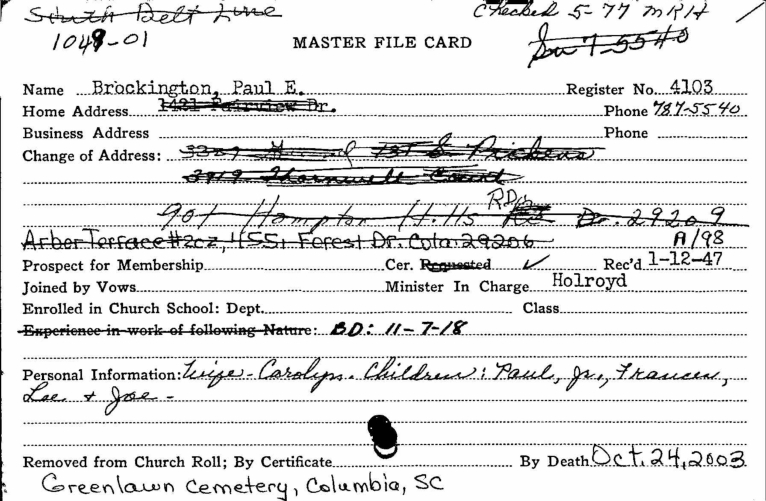 South Belt Line
Checked 5-77 MRH
1049-01
MASTER FILE CARD
Su 7-5540
Name Brockington, Paul E. Register No. 4103
Home Address 1421 Fairview Dr. Phone 787-5540
Business Address Phone
Change of Address: 737 S. Pickens
Court
RD
901 Hampton Hills Rd Dr. 29209
Arbor Terrace #202, 4551 Forest Dr. Cola. 29206 A/98
Prospect for Membership Cer. Requested ✓ Rec'd 1-12-47
Joined by Vows Minister In Charge Holroyd
Enrolled in Church School: Dept. Class
Experience in work of following Nature: BD: 11-7-18
Personal Information: Wife - Carolyn. Children: Paul, Jr., Frances,
Lee & Joe -
Removed from Church Roll; By Certificate By Death Oct. 24, 2003
Greenlawn Cemetery, Columbia, SC